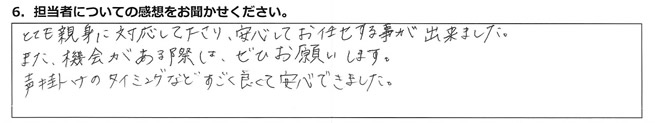 6．担当者についての感想をお聞かせください。
とても親身に対応して下さり、安心してお任せする事が出来ました。
また、機会がある際は、ぜひお願いします。
声掛けのタイミングなどすごく良くて安心できました。